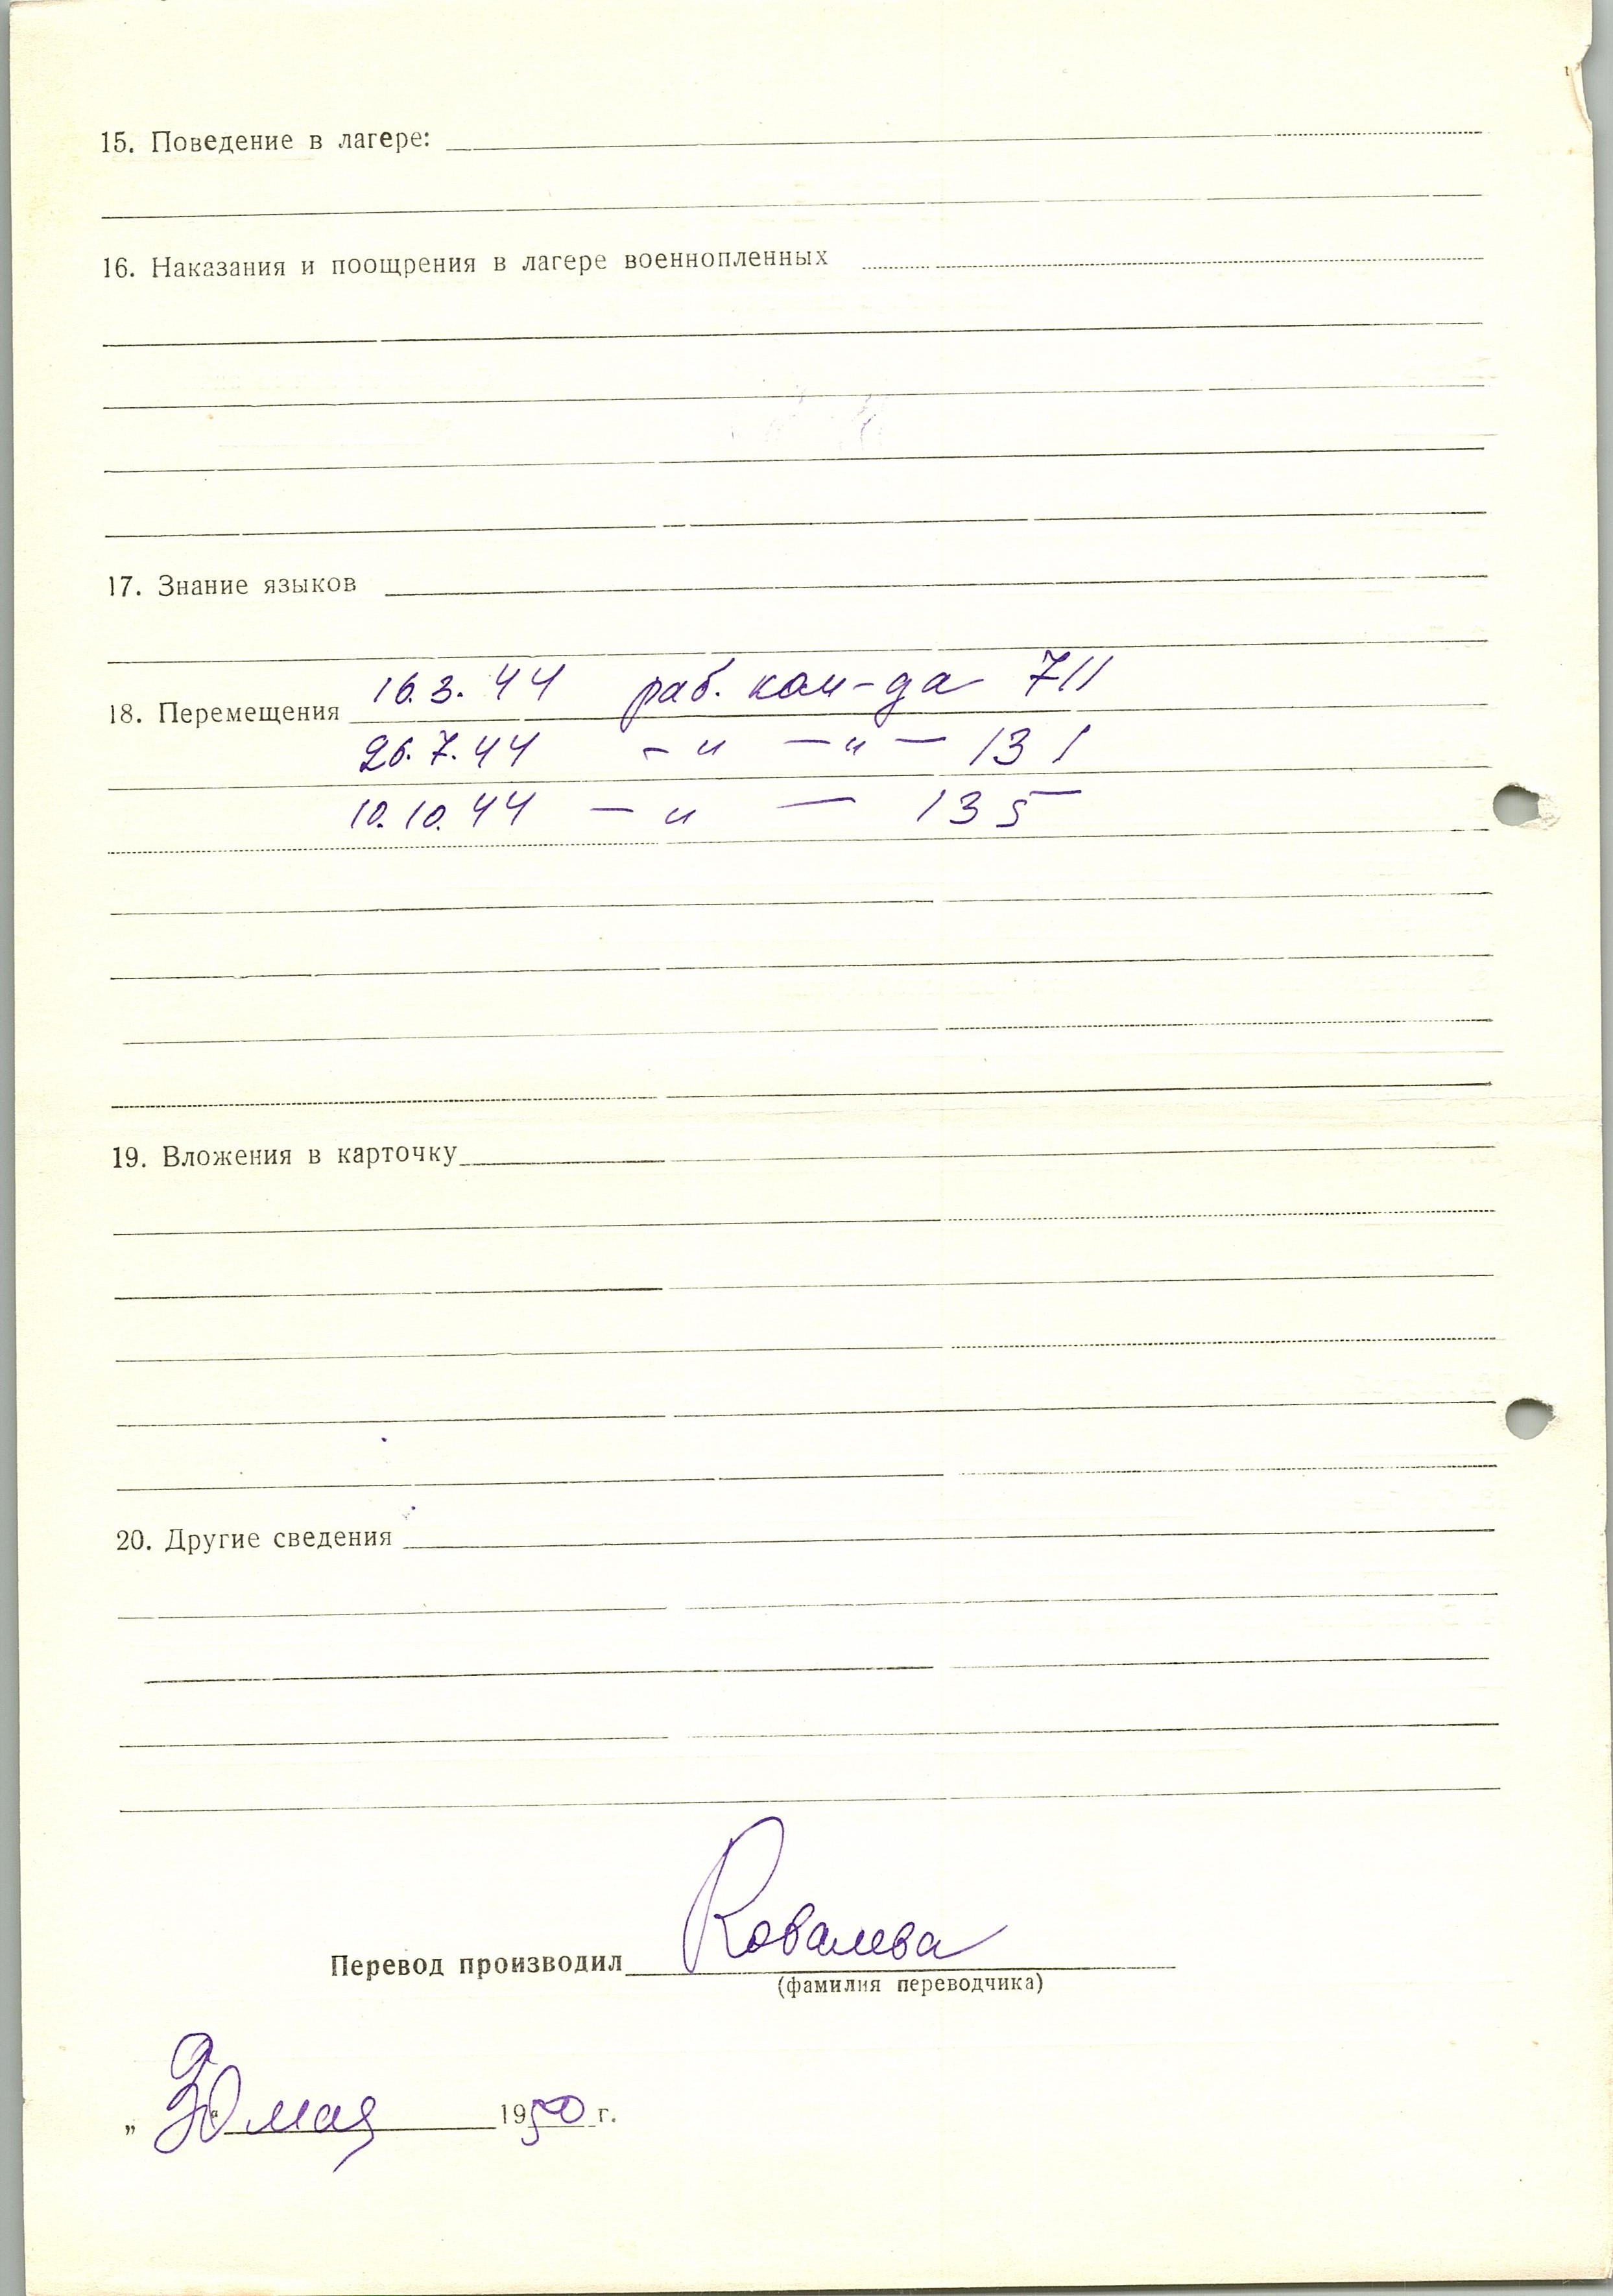 15. Поведение в лагере:
16. Наказания и поощрения в лагере военнопленных
17. Знание языков
18. Перемещения 16.3.44 раб. ком-да 711
26.7.44 – „ – „ – 131
10.10.44 – „ – 135
19. Вложения в карточку
20. Другие сведения
Перевод производил Ковалева
(фамилия переводчика)
„30“ мая 1950 г.